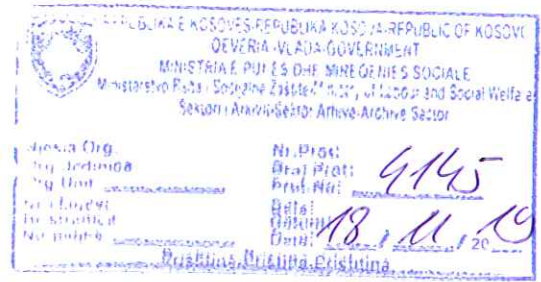 REPUBLIKA E KOSOVËS-REPUBLIKA KOSOVA-REPUBLIC OF KOSOVO
QEVERIA-VLADA-GOVERNMENT
MINISTRIA E PUNËS DHE MIRËQENIES SOCIALE
Ministarstvo Rada i Socijalne Zaštite-Ministry of Labour and Social Welfare
Sektori i Arkivit-Sektor Arhive-Archive Sector
Org.
Org. Jedinica
Org. Unit
Nr. Prot:
Broj Prot:
Prot. No:
4145
Nr. i faqeve
Br. stranica
No. pages
Data:
Datum:
Date:
18 / 11 / 2019
Prishtinë, Priština, Prishtina